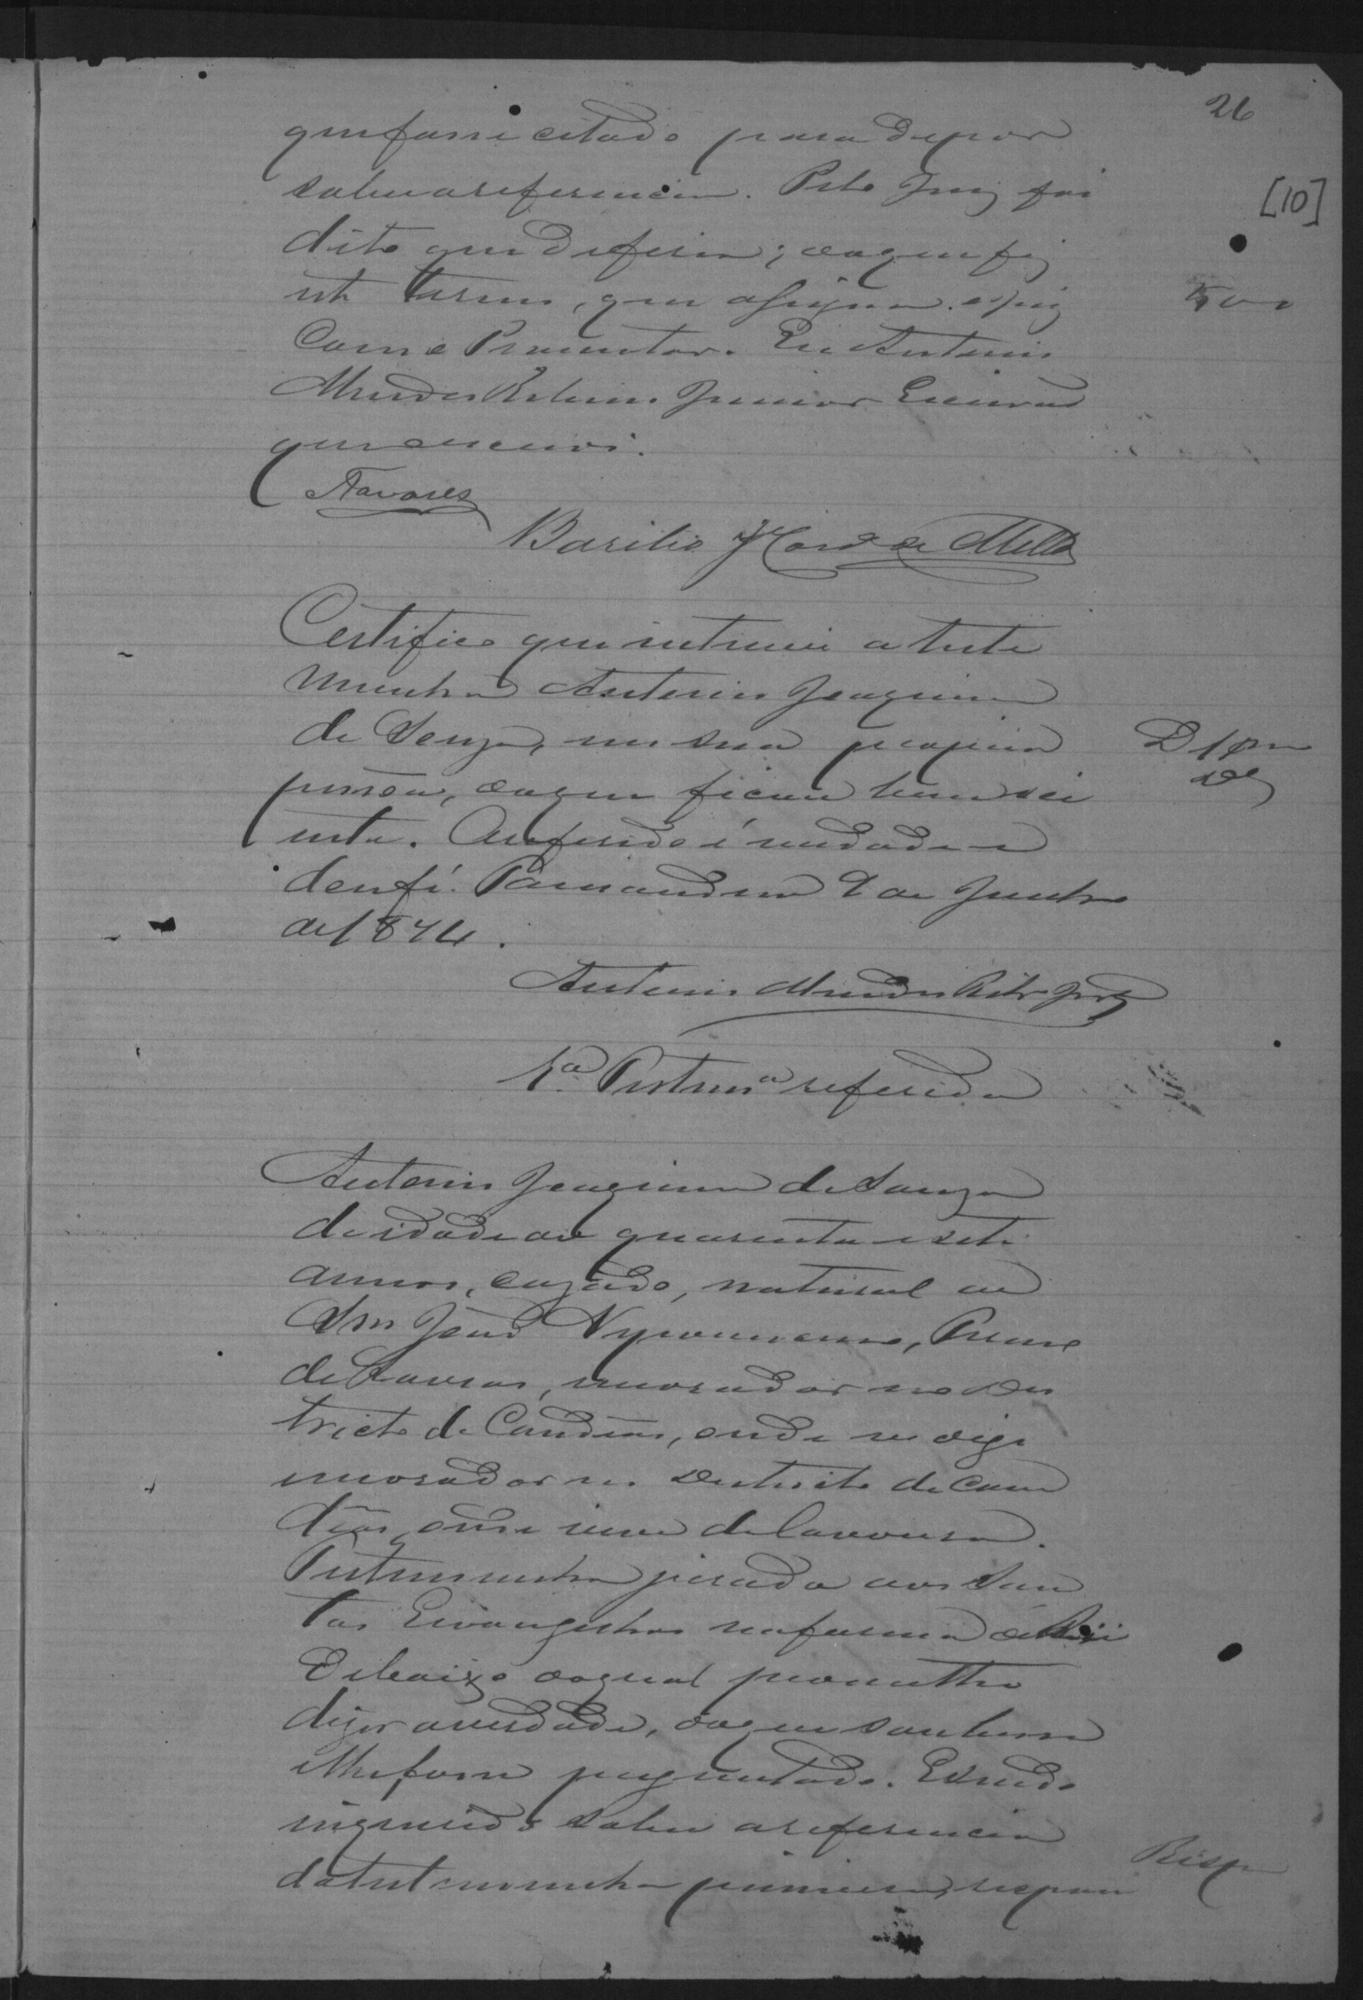 26
que fosse citado para depor
sobre a referencia. Pelo Juiz foi
[10]
dito que deferia; do que fiz
este termo, que assigna o Juiz
500
com o Promotor. Eu Antonio
Mendes Ribeiro Junior Escrivão
que escrevi.
Tavares
Basilio de Mello
Certifico que intimei a teste
munha Antonio Joaquim
de Souza, em sua propria
pessoa, do que ficou bem sci
ente. O referido é verdade e
dou fé. de Junho
de 1874.
Antonio Mendes Ribro Jor
1a Testema referida
Antonio Joaquim de Souza
de idade de quarenta e sete
annos, cazado, natural de
São João Nepomuceno,
de Lavras, morador no Des
tricto de Candêas, onde
morador no Destricto de Can
dêas, onde vive de lavoura.
Testemunha jurada aos San
tos Evangelhos na forma
Debaixo do qual prometteo
dizer a verdade, do que soubesse
e lhe fosse perguntado. E sendo
inquerido sobre a referencia
da testemunha primeira, respon
Resp